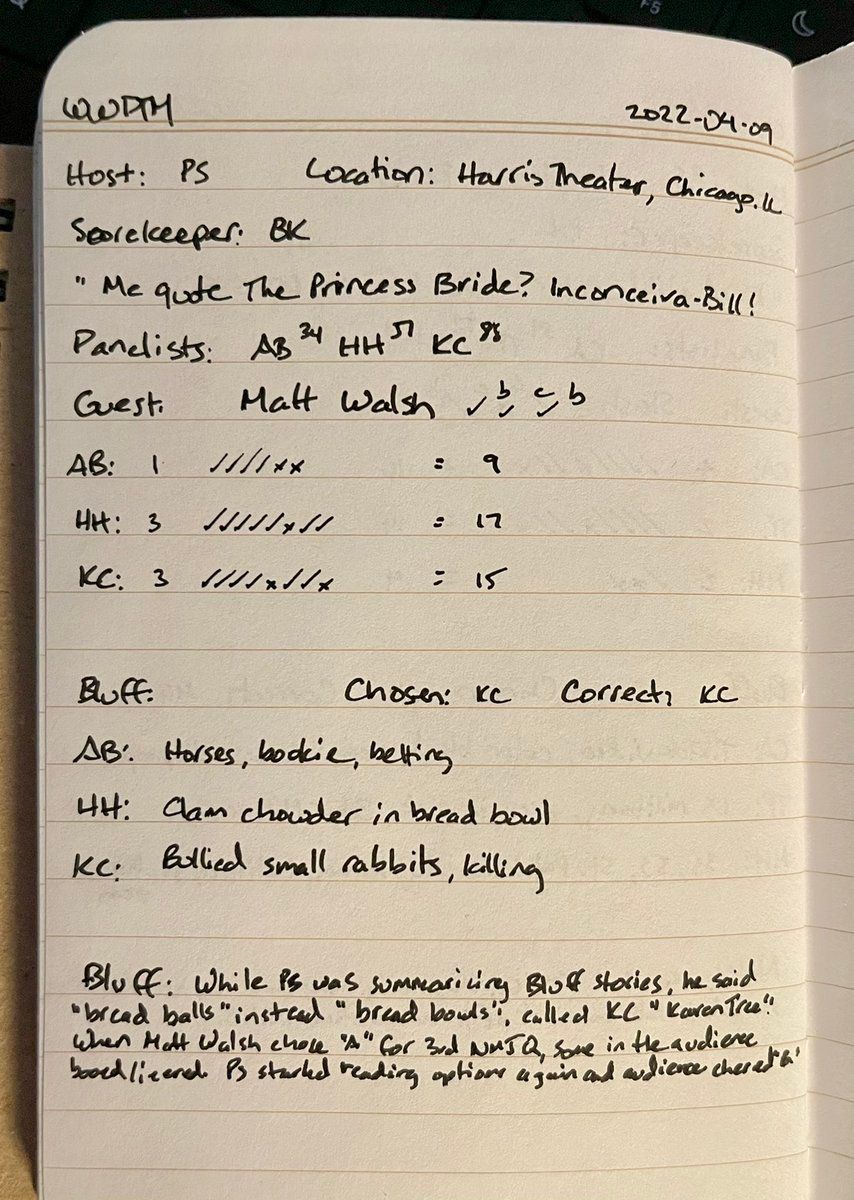 WWDTM 2022-04-09
Host: PS Location: Harris Theater, Chicago, IL
Scorekeeper: BK
"Me quote The Princess Bride? Inconceiva-Bill!
Panelists: AB 34 HH 51 KC
Guest: Matt Walsh ✓ b ✓ c ✓ b
AB: 1 ////xx = 9
HH: 3 /////x// = 17
KC: 3 ////x//x = 15
Bluff: Chosen: KC Correct: KC
AB: Horses, bookie, betting
HH: Clam chowder in bread bowl
KC: Bullied small rabbits, killing
Bluff: While PS was summarizing Bluff stories, he said
"bread balls" instead "bread bowls", called KC "KarenTree".
When Matt Walsh chose "A" for 3rd NMJQ, some in the audience
PS started reading options again and audience chered
F5